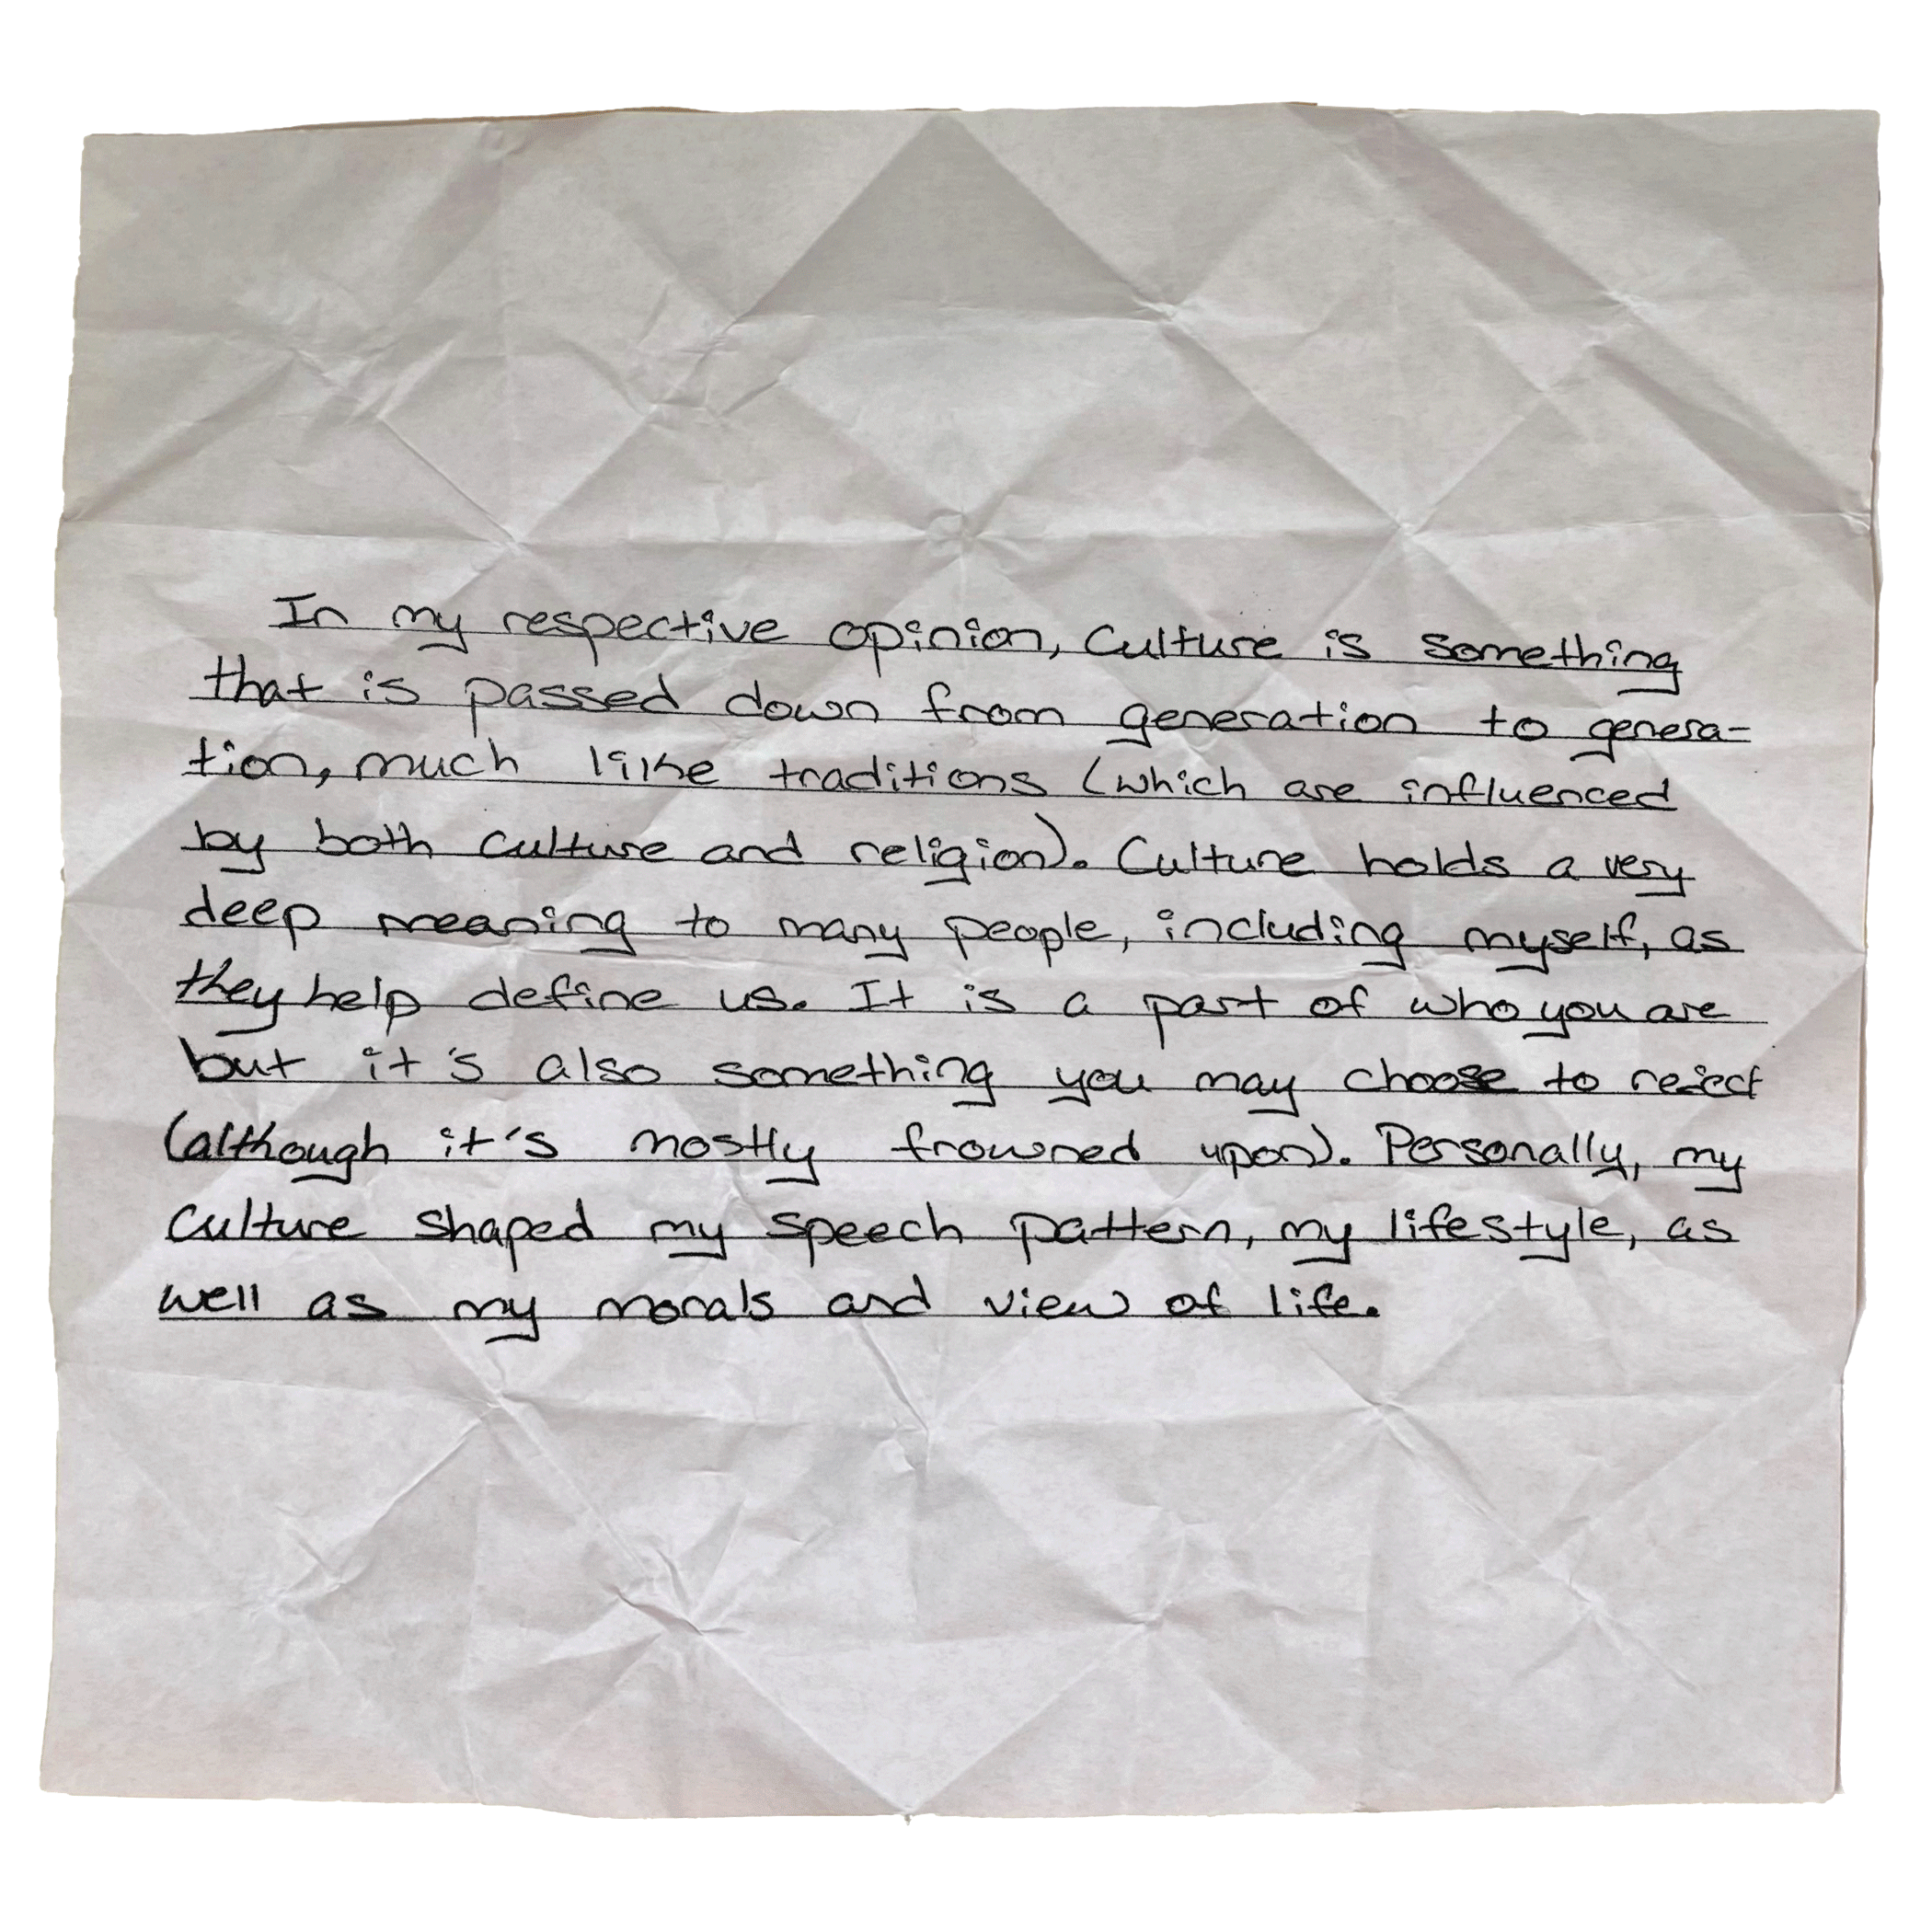 In my respective opinion, Culture is something
that is passed down from generation to genera-
tion, much like traditions (which are influenced
by both culture and religion). Culture holds a very
deep meaning to many people, including myself, as
they help define us. It is a part of who you are
but it's also something you may choose to reject
(although it's mostly frowned upon). Personally, my
culture shaped my speech pattern, my lifestyle, as
well as my morals and view of life.